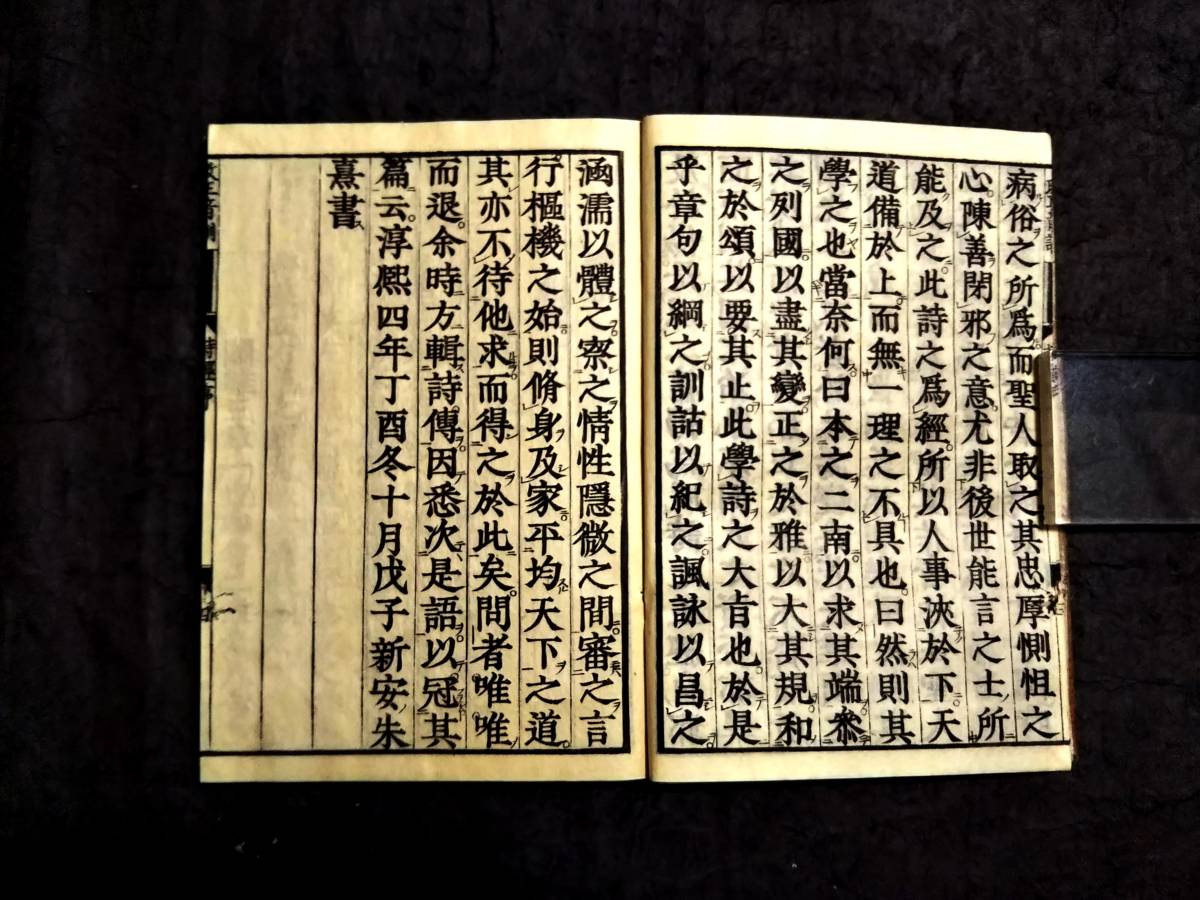 病俗之所爲而聖人取之其忠厚惻怛之
心陳善閉邪之意尤非後世能言之士所
能及之此詩之爲經所以人事浹於下天
道備於上而無一理之不具也曰然則其
學之也當奈何曰本之二南以求其端叅
之列國以盡其變正之於雅以大其規和
之於頌以要其止此學詩之大㫖也於是
乎章句以綱之訓詁以紀之諷詠以昌之
涵濡以體之察之情性隱微之間審之言
行樞機之始則脩身及家平均天下之道
其亦不待他求而得之於此矣問者唯唯
而退余時方輯詩傳因悉次是語以冠其
篇云淳熙四年丁酉冬十月戊子新安朱
熹書